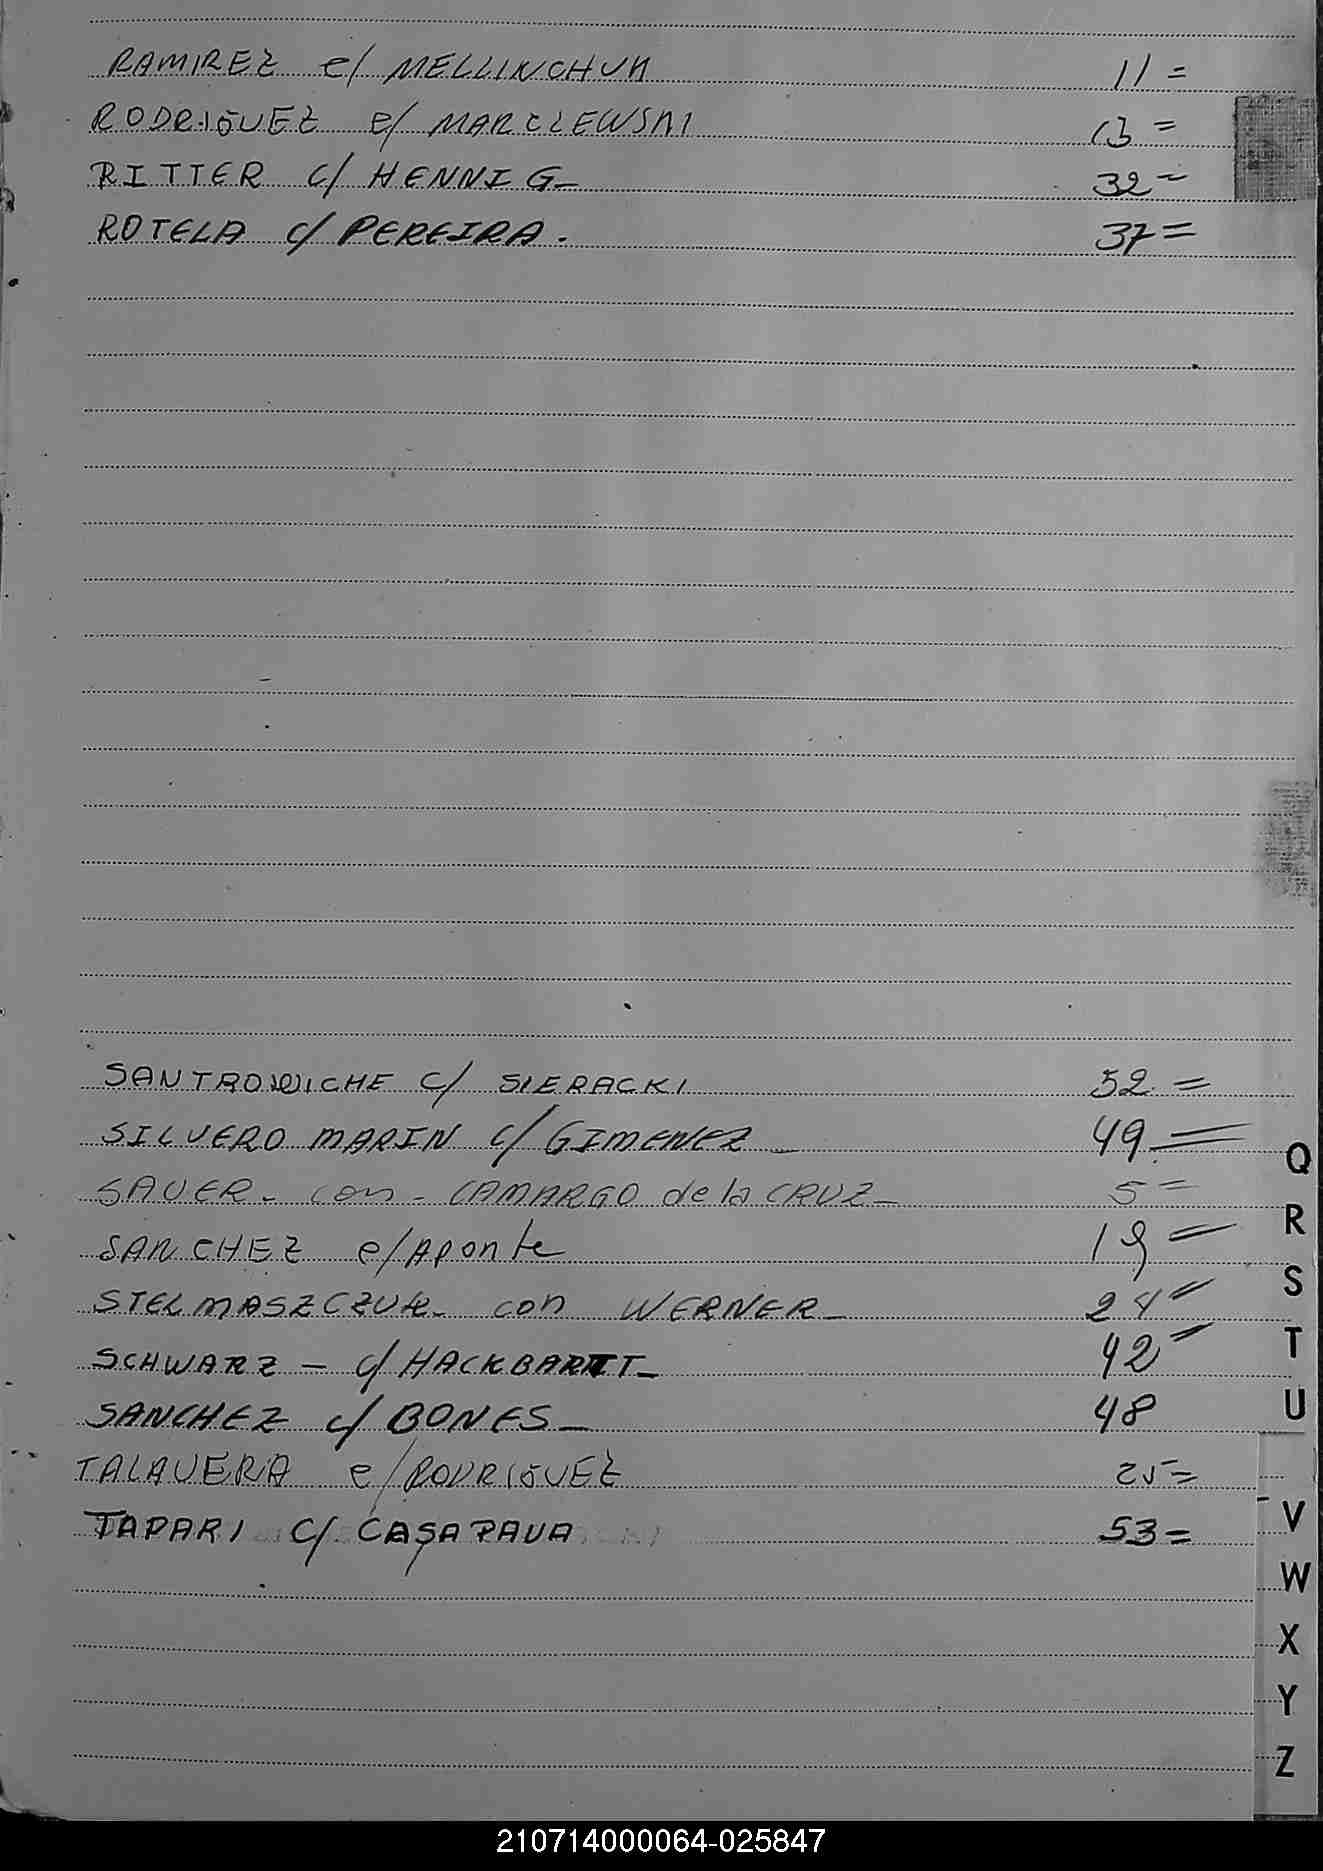 RAMIREZ e/ MELLINCHUK 11=
RODRIGUEZ e/ MARCZEWSKI 13=
RITTER c/ HENNIG- 32=
ROTELA c/ PEREIRA. 37=
SANTROWICHE C/ SIERACKI 52=
SILVERO MARIN c/ GIMENEZ - 49=
SAUER - con - CAMARGO de la CRUZ - 5=
SANCHEZ e/ Aponte 19=
STELMASZCZUK - con WERNER - 24=
SCHWARZ - c/ HACKBARTT - 42=
SANCHEZ c/ BONES - 48
TALAVERA e/ RODRIGUEZ 25=
TAPARI C/ CASAPAVA 53=
Q
R
S
T
U
V
W
X
Y
Z
210714000064-025847